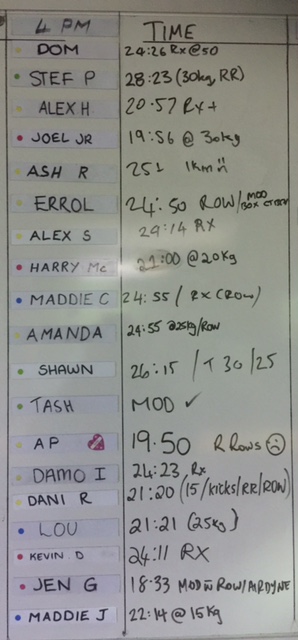 4 PM TIME
DOM 24:26 Rx @50
STEF P 28:23 (30kg, RR)
ALEX H 20:57 Rx +
JOEL JR 19:56 @ 30kg
ASH R 251 1km
ERROL 24:50 ROW/MOD BOX
ALEX S 29:14 RX
HARRY Mc 21:00 @20kg
MADDIE C 24:55 / RX (ROW)
AMANDA 24:55 @25kg/ROW
SHAWN 26:15 / T 30/25
TASH MOD ✓
AP 19.50 R Rows ☹
DAMO I 24:23 Rx
DANI R 21:20 (15/kicks/RR/ROW)
LOU 21:21 (25kg)
KEVIN D 24:11 RX
JEN G 18:33 MOD ROW/AIRDYNE
MADDIE J 22:14 @ 15kg